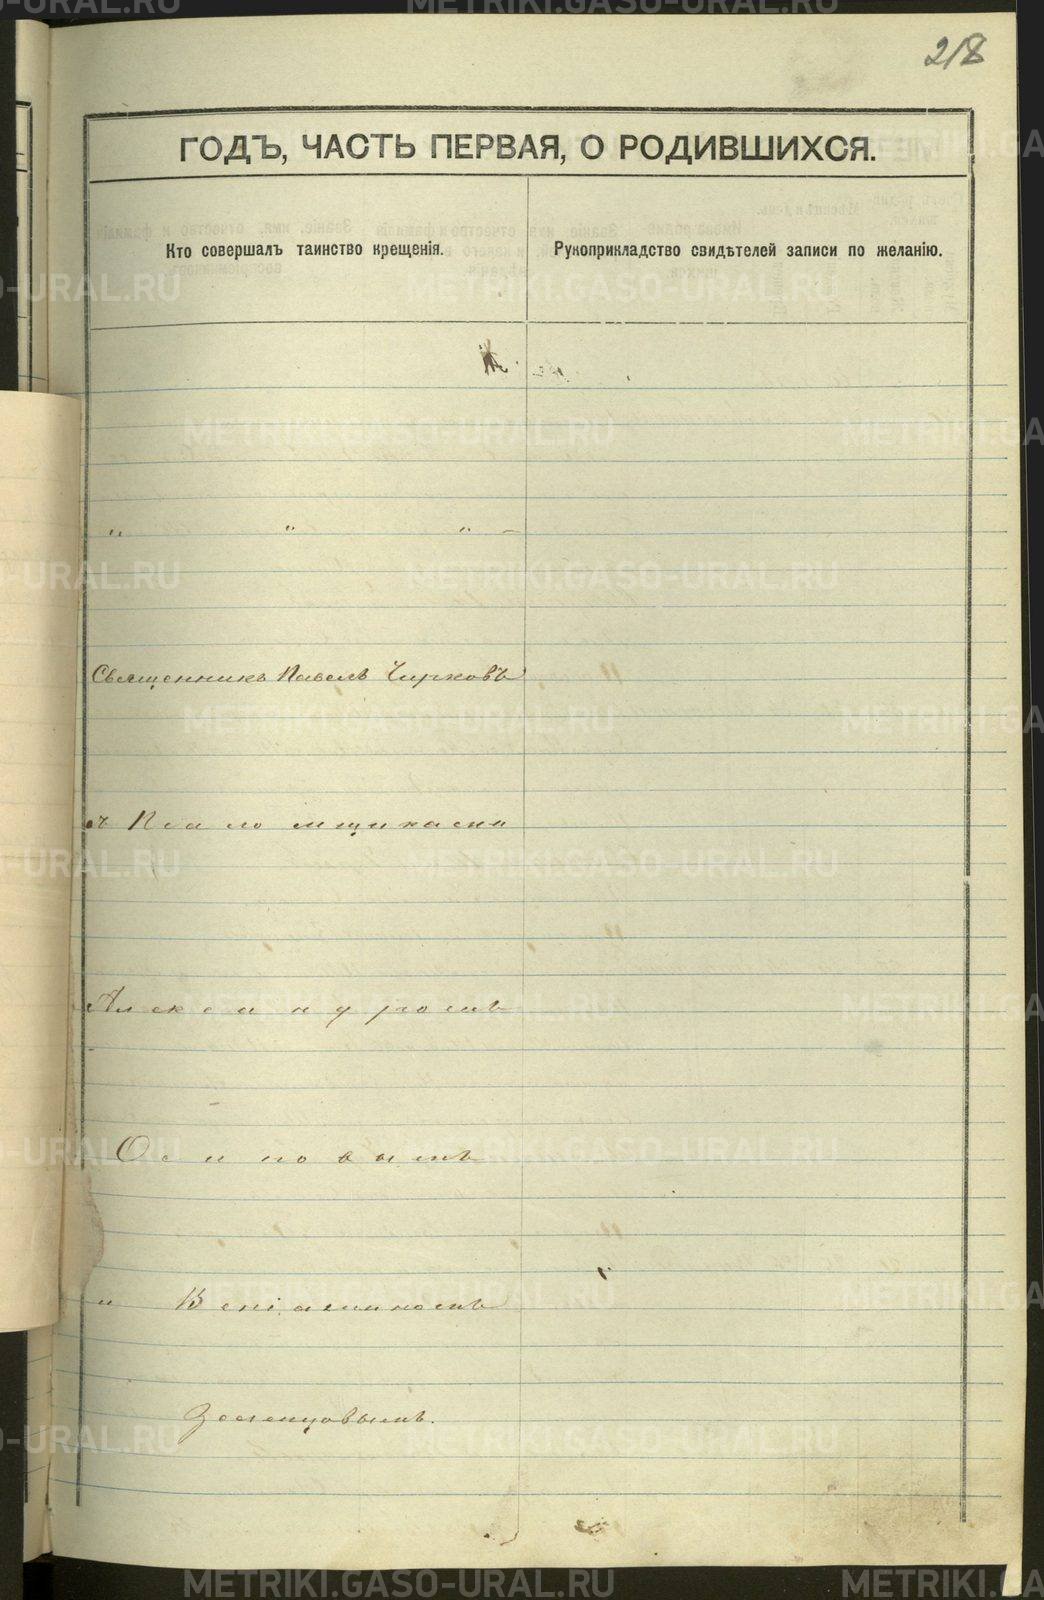 218
ГОДЪ, ЧАСТЬ ПЕРВАЯ, О РОДИВШИХСЯ.
Кто совершалъ таинство крещенія.
Рукоприкладство свидѣтелей записи по желанію.
" " " –
Священникъ Павелъ Чирковъ
съ Псаломщиками
Александромъ
Осиповымъ
и Веніаминомъ
Земенцовымъ.
METRIKI.GASO-URAL.RU